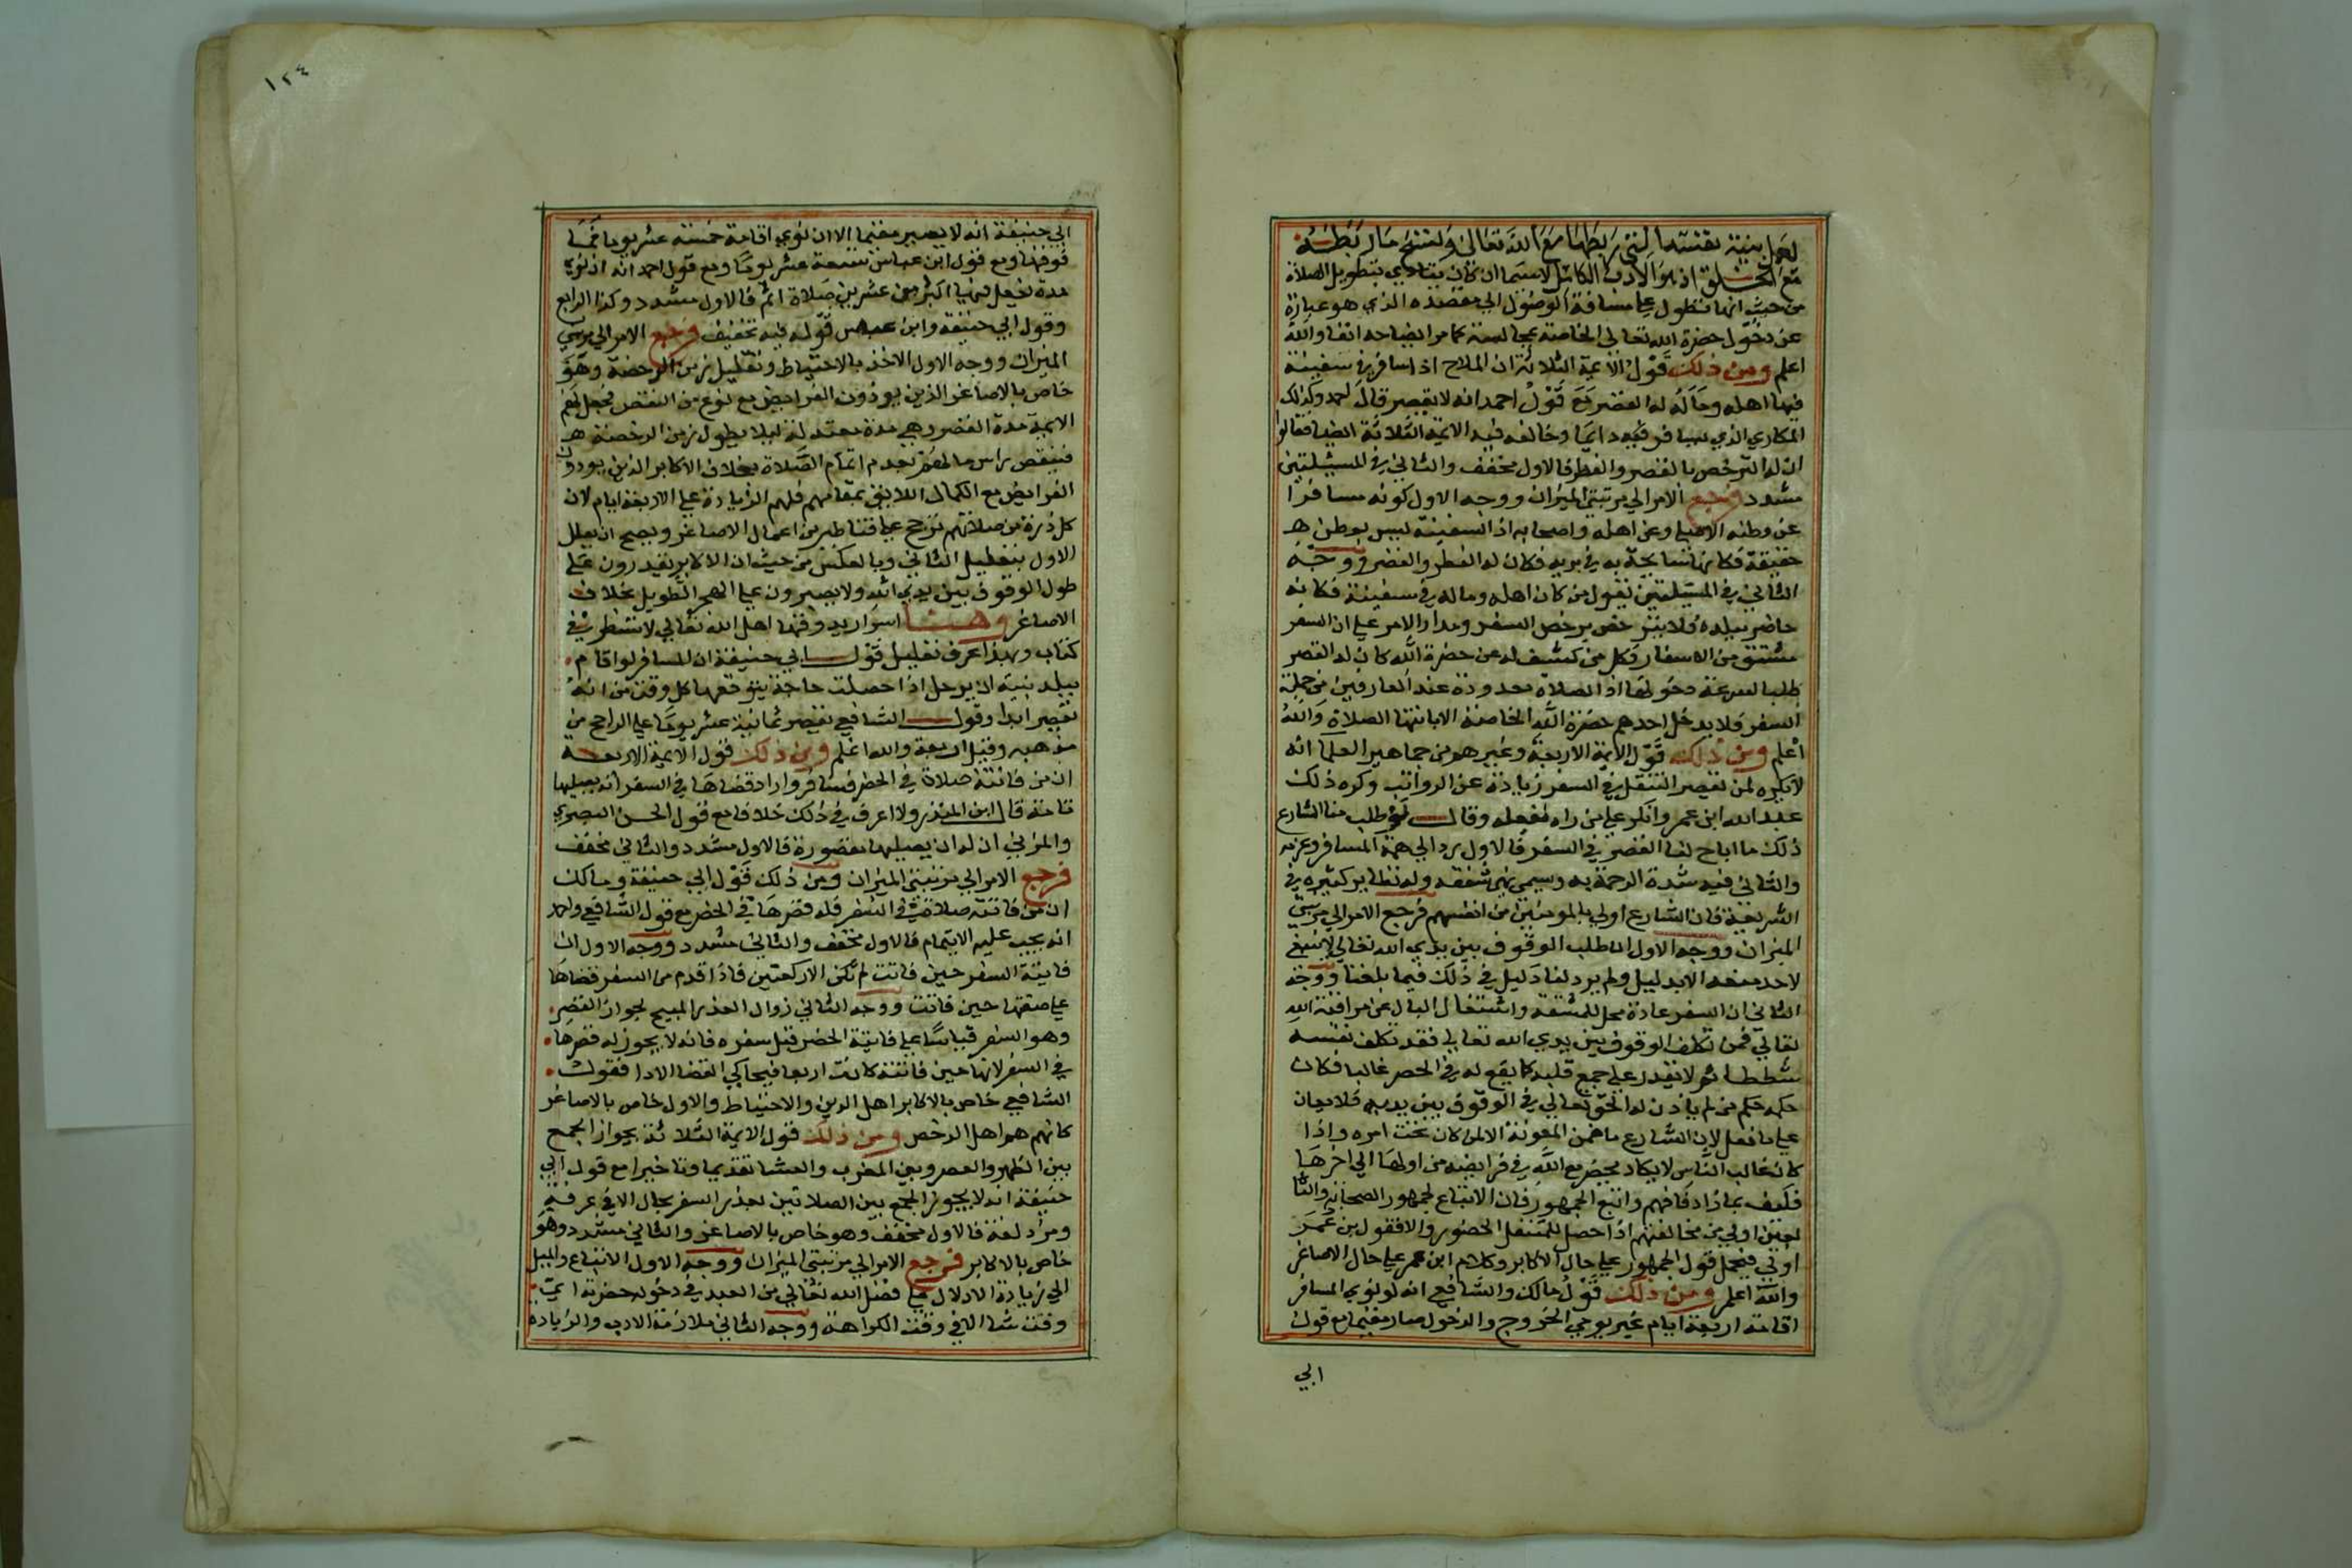 لعمل بنية نفسه التي ربطها مع الله تعالى ولفسخ ما ربطه
مع الخلق اذ هو الادب الكامل لاسيما ان كان يتاذي بتطويل الصلاة
من حيث انها تطول عليه مسافة الوصول الي مقصده الذي هو عبارة
عن دخول حضرة الله تعالى الخاصة بمجالسته كما مر ايضاحه انفا والله
اعلم ومن ذلك قول الائمة الثلاثة ان الملاح اذا سافر في سفينة
فيها اهله وماله له القصر مع قول احمد انه لا يقصر قال احمد وكذلك
المكاري الذي يسافر فيه دائما وخالفه فيه الائمة الثلاثة ايضا فقالوا
ان له الترخص بالقصر والفطر فالاول مخفف والثاني في المسئلتين
مشدد فرجع الامر الي مرتبتي الميزان ووجه الاول كونه مسافرا
عن وطنه الاصلي وعن اهله واصحابه اذ السفينة ليس بوطن هـ
حقيقة فكانها سائحة به في برية فكان له الفطر والقصر ووجه
الثاني في المسئلتين نقول من كان اهله وماله في سفينة فكانه
حاضر ببلده فلا يترخص برخص السفر ومدار الامر علي ان السفر
مشتق من الاسفار فكل من كشف له عن حضرة الله كان له القصر
طلبا لسرعة دخولها اذ الصلاة معدودة عند العارفين من جملة
السفر فلا يدخل احدهم حضرة الله الخاصة الا بانتها الصلاة والله
اعلم ومن ذلك قول الائمة الاربعة وغيرهم من جماهير العلما انه
لا يكره لمن يقصر التنفل في السفر زيادة عن الرواتب وكره ذلك
عبد الله ابن عمر وانكر علي من راه يفعله وقال لو طلب منا الشارع
ذلك ما اباح لنا القصر في السفر فالاول يرد الي همة المسافر وعزمه
والثاني فيه شدة الرحمة به وسيمي نهي شفقة وله نظاير كثيرة في
الشريعة فان الشارع اولي بالمومنين من انفسهم فرجع الامر الي مرتبتي
الميزان ووجه الاول ان طلب الوقوف بين يدي الله تعالى لا ينبغي
لاحد منعه الا بدليل ولم يرد لنا دليل في ذلك فيما بلغنا ووجه
الثاني ان السفر عادة محل للمشقة واشتغال البال عن مراقبة الله
تعالى فمن تكلف الوقوف بين يدي الله تعالى فقد تكلف نفسه
شططا ثم لا يقدر علي جمع قلبه كما يقع له في الحضر غالبا فكان
حكمه حكم من لم ياذن له الحق تعالى في الوقوف بين يديه فلا يعان
علي ما فعل لان الشارع ما ضمن المعونة الا لمن كان تحت امره واذا
كان غالب الناس لا يكاد يحضر مع الله في فرايضه من اولها الي اخرها
فكيف بما زاد فافهم واتبع الجمهور فان الاتباع لجمهور الصحابة والتا
بعين اولي من مخالفتهم اذا حصل للمتنفل الحضور والا فقول بن عمر
اولي فيحمل قول الجمهور علي حال الاكابر وكلام ابن عمر علي حال الاصاغر
والله اعلم ومن ذلك قول مالك والشافعي انه لو نوي المسافر
اقامة اربعة ايام غير يومي الخروج والدخول صار مقيما مع قول
ابي
١٢٤
ابي حنيفة انه لا يصير مقيما الا ان نوي اقامة خمسة عشر يوما فما
فوقها ومع قول ابن عباس تسعة عشر يوما ومع قول احمد انه ان نوي
مدة يفعل فيها اكثر من عشرين صلاة اتم فالاول مشدد وكذا الرابع
وقول ابي حنيفة وابن عباس قوله فيه تخفيف فرجع الامر الي مرتبتي
الميزان ووجه الاول الاخذ بالاحتياط وتقليل زمن الرخصة وهو
خاص بالاصاغر الذين يودون الفرايض مع نوع من النقص فجعل لهم
الايمة مدة القصر وهي مدة معتدلة ليلا يطول زمن الرخصة هـ
فينقص راس مالهم بعدم اتمام الصلاة بخلاف الاكابر الذين يودون
الفرايض مع الكمال اللايق بمقامهم فلهم الزيادة علي الاربعة ايام لان
كل ذرة من صلاتهم ترجح علي قناطير من اعمال الاصاغر ويصح ان يعلل
الاول بتعليل الثاني وبالعكس من حيث ان الاكابر يقدرون علي
طول الوقوف بين يدي الله ولا يصبرون علي الهجر الطويل بخلاف
الاصاغر وهنا اسرار يذوقها اهل الله تعالى لا تسطر في
كتاب وبهذا عرف تعليل قول ابي حنيفة ان المسافر لو اقام
ببلد بنية ان يرحل اذا حصلت حاجة يتوقعها كل وقت من انه
يقصر ابدا وقول الشافعي يقصر ثمانية عشر يوما علي الراجح من
مذهبه وقيل اربعة والله اعلم ومن ذلك قول الائمة الاربعة
ان من فاتته صلاة في الحضر فسافر واراد قضاها في السفر انه يصليها
تامة قال ابن المنذر ولا اعرف في ذلك خلافا مع قول الحسن البصري
والمزني ان له ان يصليها مقصورة فالاول مشدد والثاني مخفف
فرجع الامر الي مرتبتي الميزان ومن ذلك قول ابي حنيفة ومالك
ان من فاتته صلاة في السفر فله قصرها في الحضر مع قول الشافعي واحمد
انه يجب عليه الاتمام فالاول مخفف والثاني مشدد ووجه الاول ان
فايتة السفر حين فاتت لم تكن الا ركعتين فاذا قدم من السفر قضاها
علي صفتها حين فاتت ووجه الثاني زوال العذر المبيح لجواز القصر
وهو السفر قياسا علي فايتة الحضر قبل سفره فانه لا يجوز له قصرها
في السفر لانها حين فاتته كانت اربعا فيحاكي القضا الادا فقول
الشافعي خاص بالاكابر اهل الدين والاحتياط والاول خاص بالاصاغر
كانهم هم اهل الرخص ومن ذلك قول الائمة الثلاثة بجواز الجمع
بين الظهر والعصر وبين المغرب والعشا تقديما وتاخيرا مع قول ابي
حنيفة انه لا يجوز الجمع بين الصلاتين بعذر السفر بحال الا في عرفة
ومزدلفة فالاول مخفف وهو خاص بالاصاغر والثاني مشدد وهو
خاص بالاكابر فرجع الامر الي مرتبتي الميزان ووجه الاول الاتباع والميل
الي زيادة الادلال علي فضل الله تعالى من العبد في دخوله حضرته اي
وقت شا الا في وقت الكراهة ووجه الثاني ملازمة الادب والزيادة